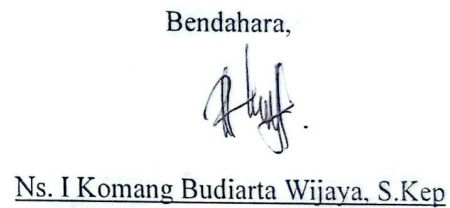 Bendahara,
Ns. I Komang Budiarta Wijaya, S.Kep